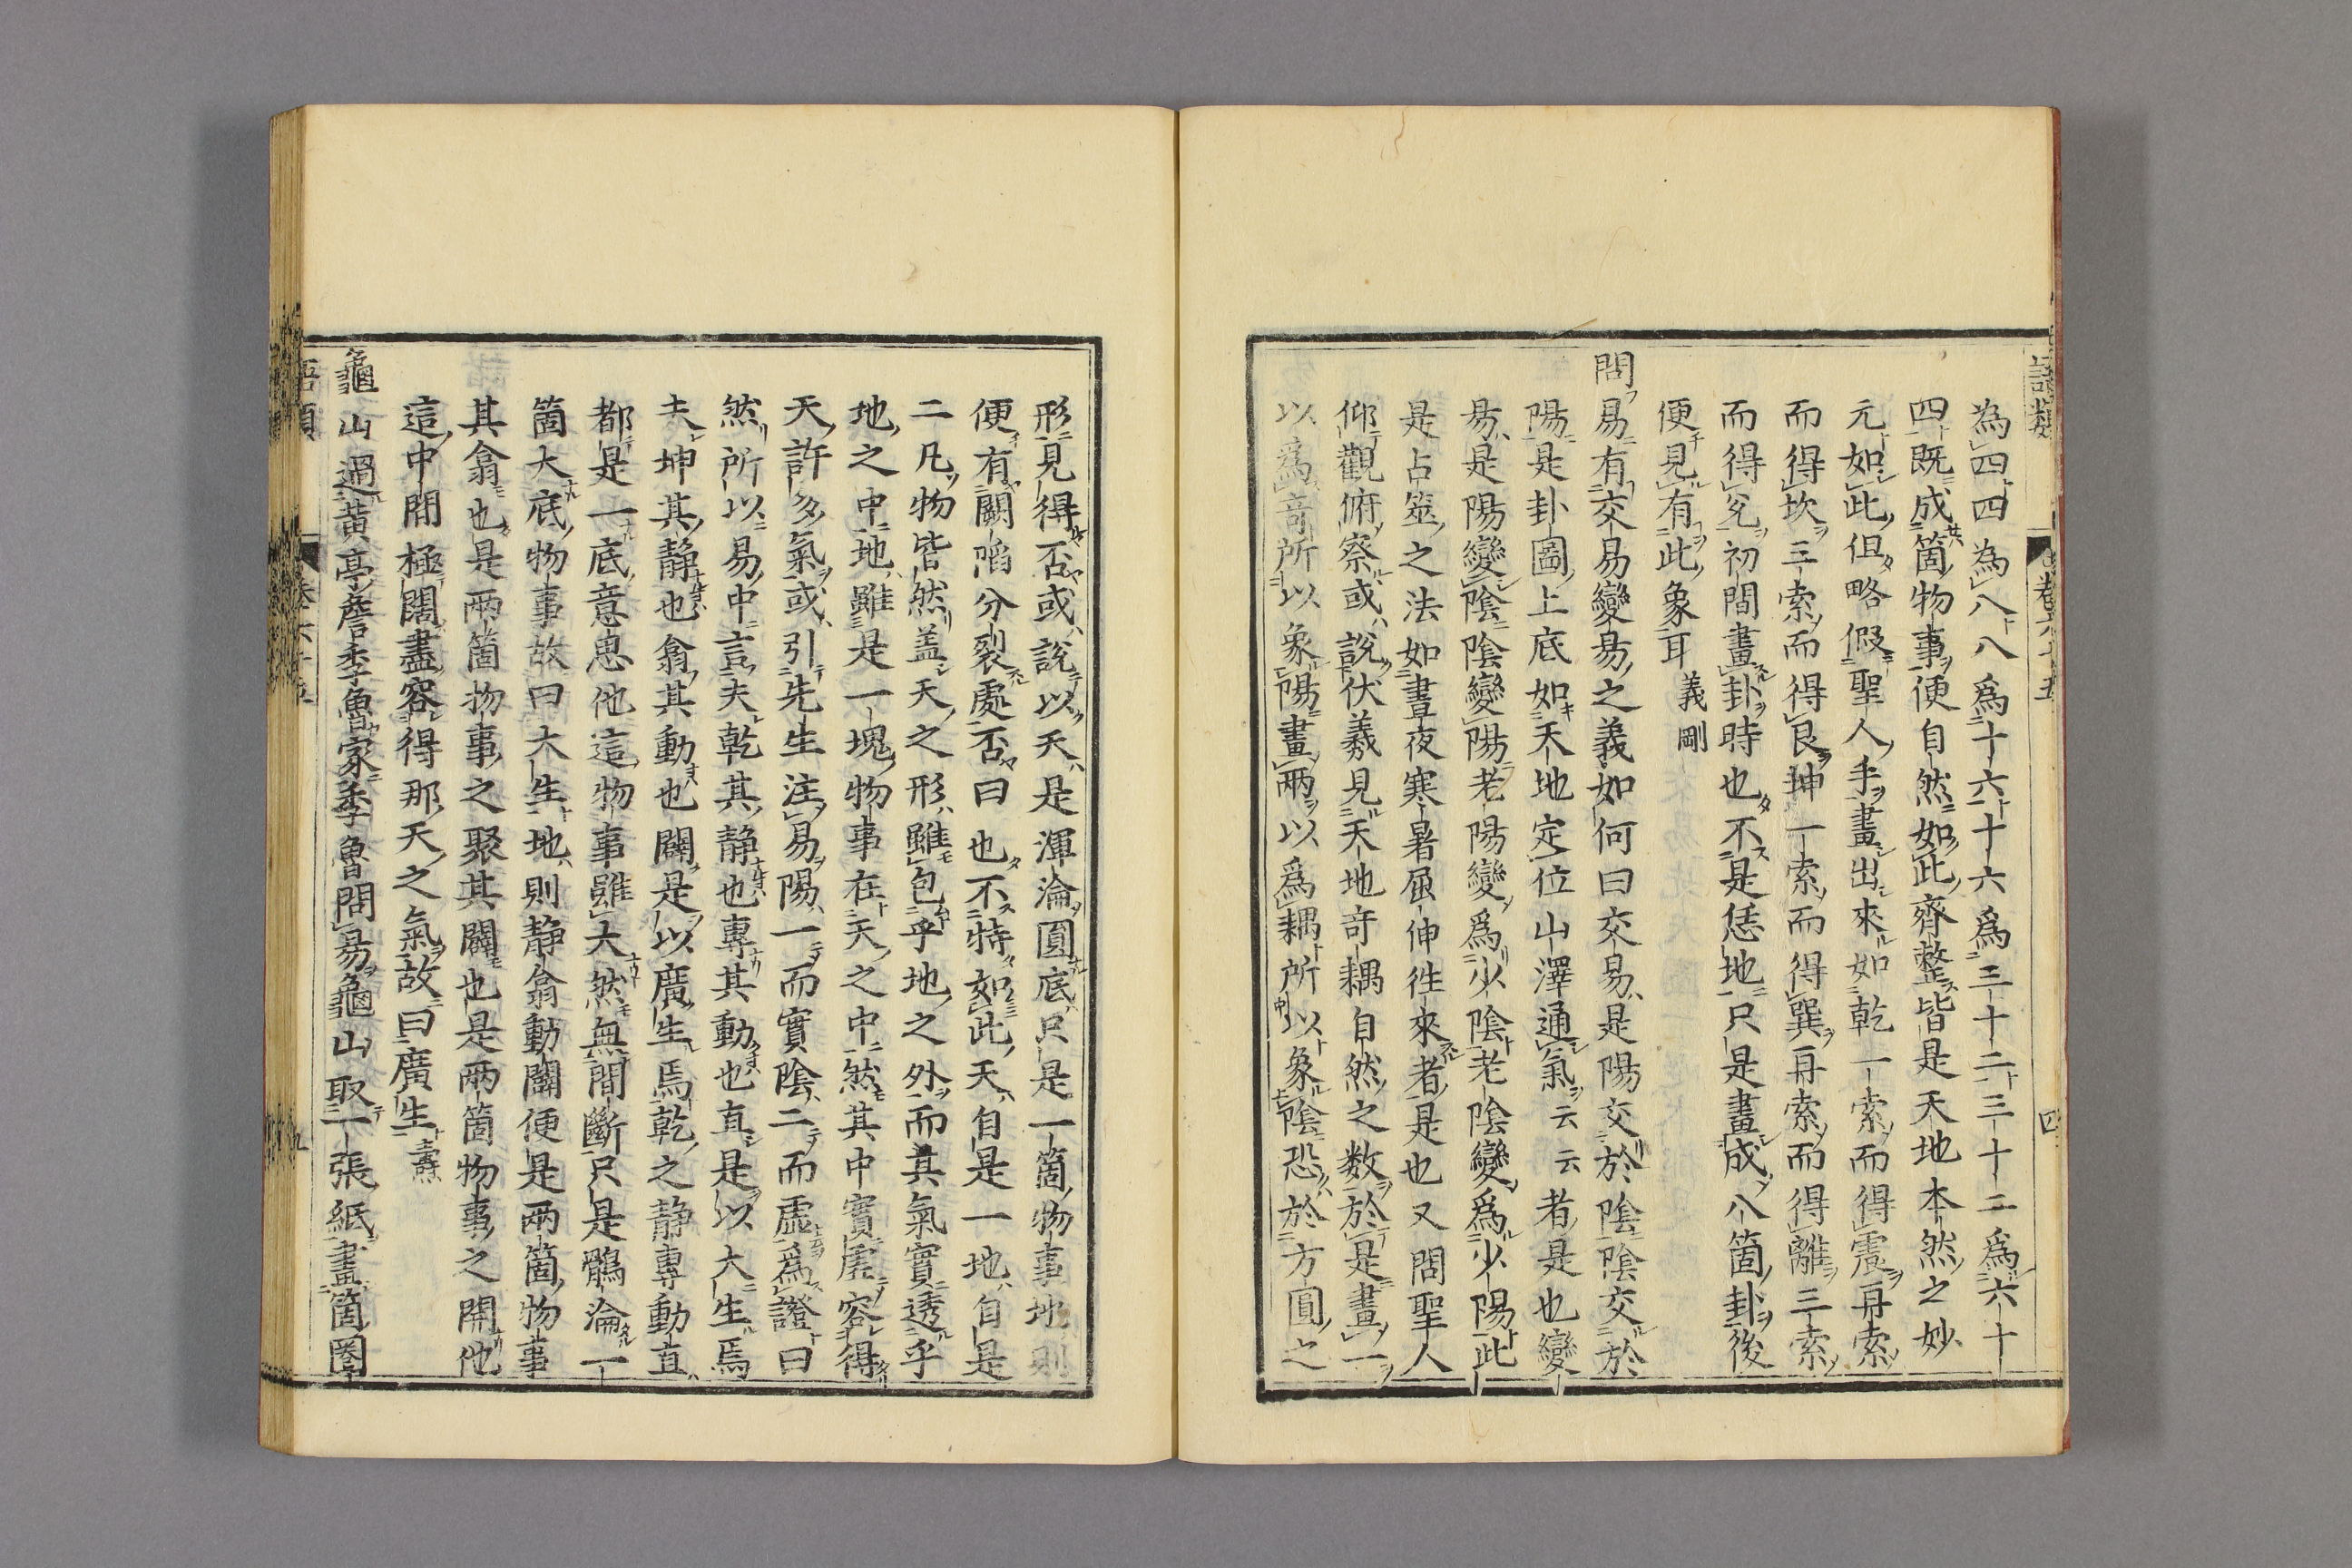 為四四為八八為十六十六為三十二三十二為六十
四既成箇物事便自然如此齊整皆是天地本然之妙
元如此但略假聖人手畫出來如乾一索而得震再索
而得坎三索而得艮坤一索而得巽再索而得離三索
而得兌初間畫卦時也不是恁地只是畫成八箇卦後
便見有此象耳義剛
問易有交易變易之義如何曰交易是陽交於陰陰交於
陽是卦圖上底如天地定位山澤通氣云云者是也變
易是陽變陰陰變陽老陽變為少陰老陰變為少陽此
是占筮之法如晝夜寒暑屈伸往來者是也又問聖人
仰觀俯察或說伏羲見天地奇耦自然之数於是畫一
以為奇所以象陽畫兩以為耦所以象陰恐於方圓之
形見得否或說以天是渾淪圓底只是一箇物事地則
便有闢陷分裂處否曰也不特如此天自是一地自是
二凡物皆然盖天之形雖包乎地之外而其氣實透乎
地之中地雖是一塊物事在天之中然其中實虛容得
天許多氣或引先生注易陽一而實陰二而虛為證曰
然所以易中言夫乾其静也專其動也直是以大生焉
夫坤其静也翕其動也闢是以廣生焉乾之静專動直
都是一底意思他這物事雖大然無間斷只是鶻淪一
箇大底物事故曰大生地則静翕動闢便是兩箇物事
其翕也是兩箇物事之聚其闢也是兩箇物事之開他
這中間極闊盡容得那天之氣故曰廣生
龜山過黃亭詹季魯家季魯問易龜山取一張紙畫箇圈